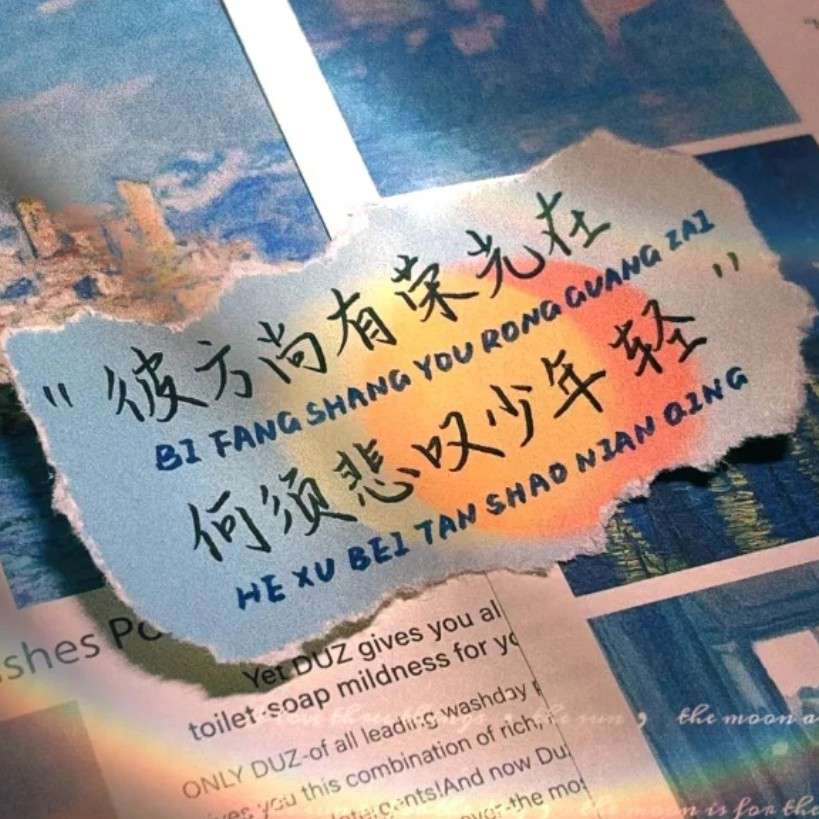 "彼方尚有荣光在
BI FANG SHANG YOU RONG GUANG ZAI
何须悲叹少年轻"
HE XU BEI TAN SHAO NIAN QING
shes
Yet DUZ gives you al
toilet-soap mildness for yo
ONLY DUZ-of all leading washday
you this combination of rich,
And now Du
the mo
love three things the sun , the moon a
the moon is for the